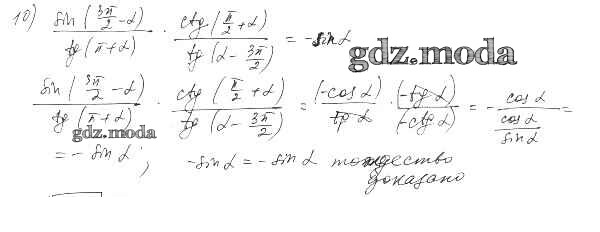 10) sin(3π/2 - α) / tg(π + α) · ctg(π/2 + α) / tg(α - 3π/2) = - sin α
gdz.moda
sin(3π/2 - α) / tg(π + α) · ctg(π/2 + α) / tg(α - 3π/2) = (-cos α) / tg α · (-tg α) / (-ctg α) = - cos α / (cos α / sin α) =
gdz.moda
= - sin α ; - sin α = - sin α тождество
доказано